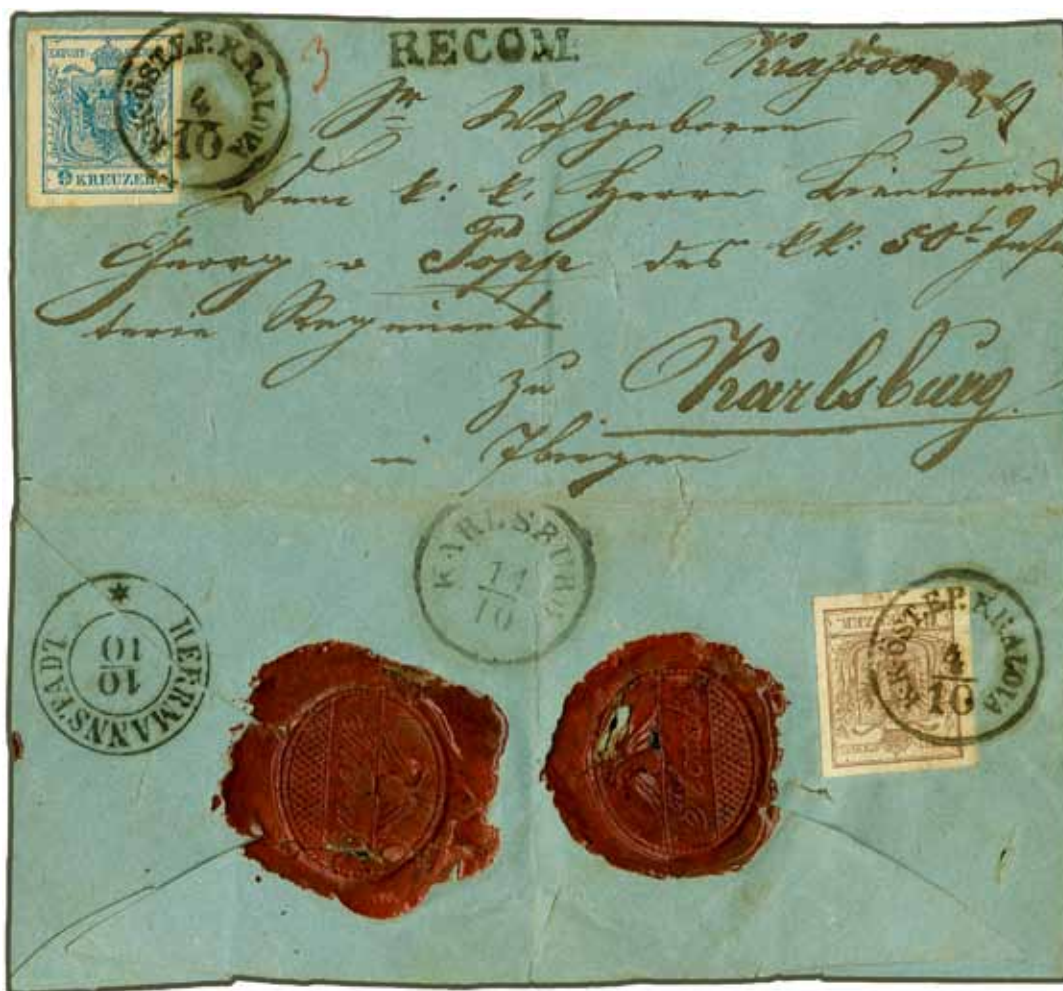 K.K.ÖST.E.P. KRALOVA
4
10
9 KREUZER
3
RECOM.
Krajova
Sr Wohlgeboren
Dem k: k: Herrn Lieutenant
Georg v Popp des kk: 50t Inf
terie Regiment
zu Karlsburg
in
KARLSBURG
11
10
HERRMANNSTADT
10
10
K.K.ÖST.E.P. KRALOVA
4
10
KREUZER